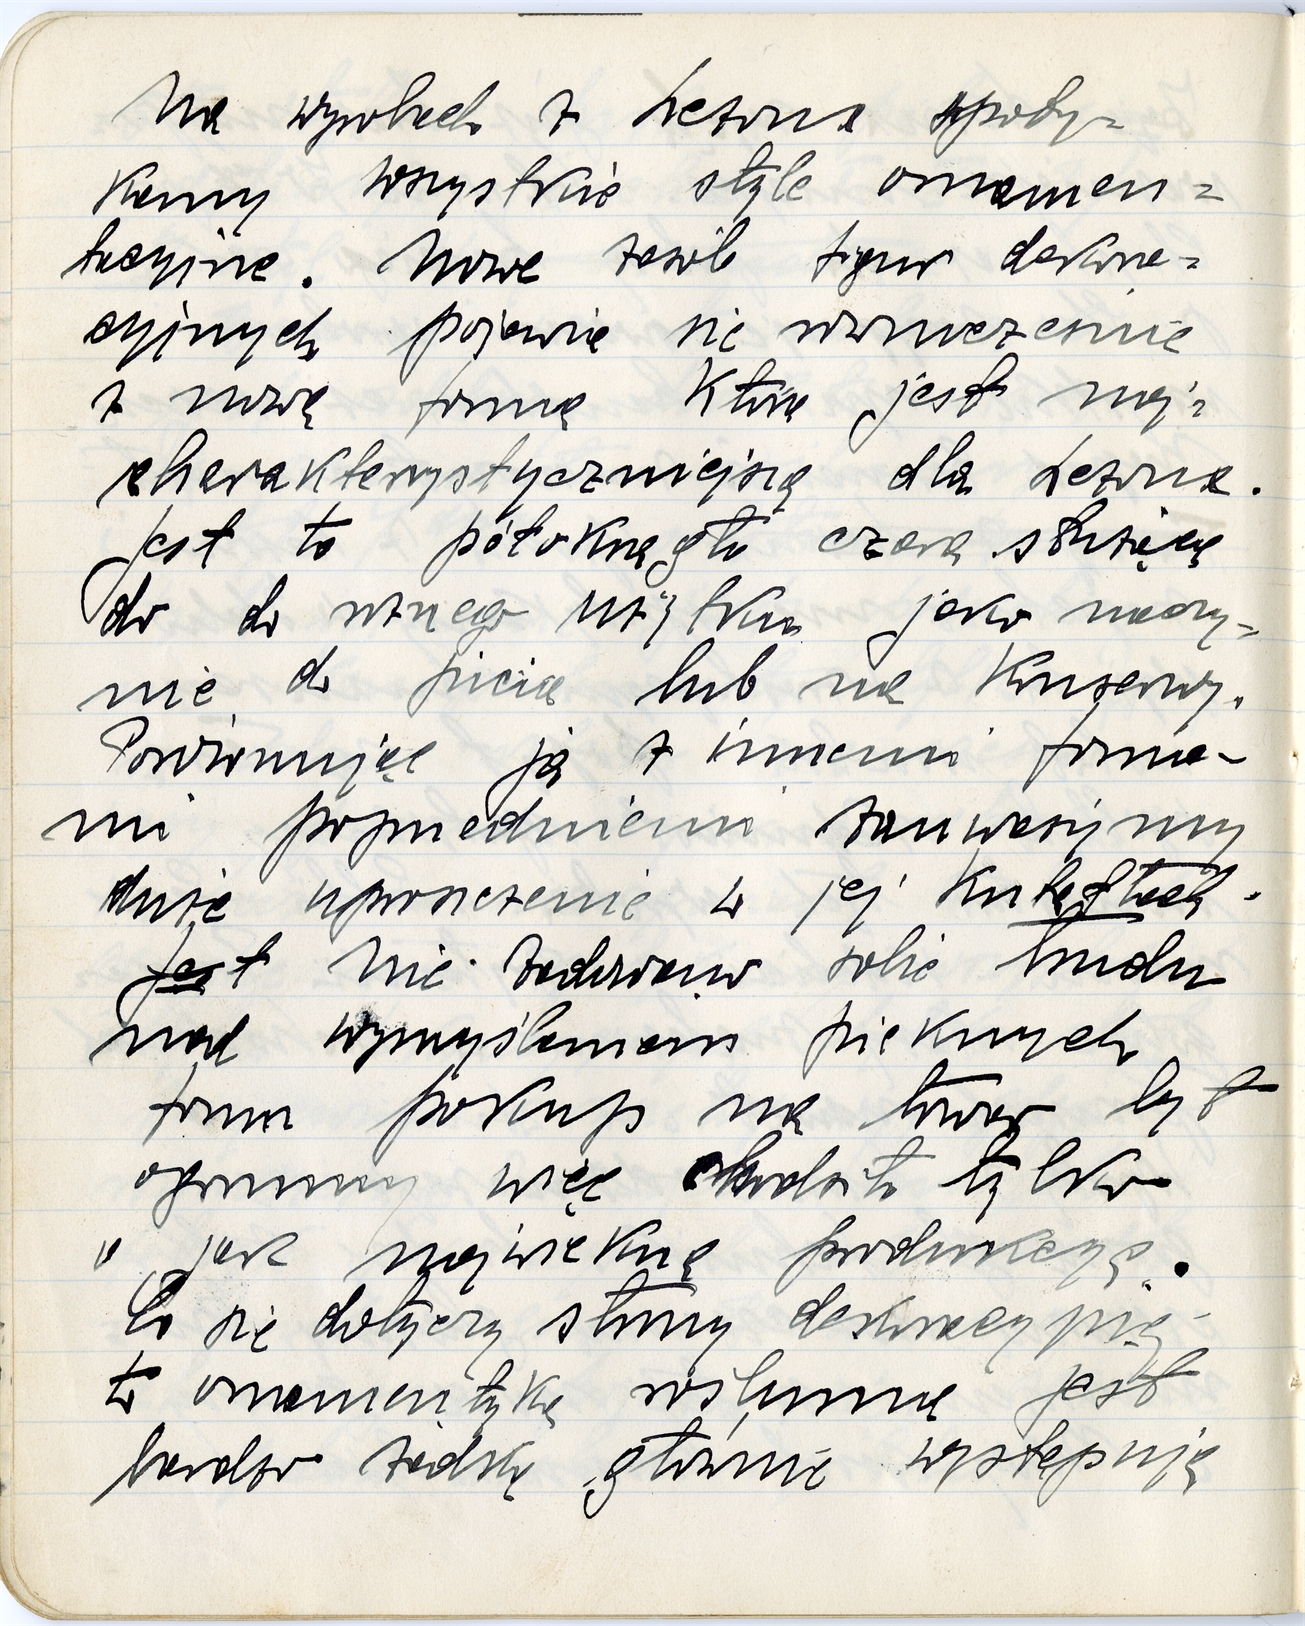 Na wyrobach z Lezoux spoty-
kamy wszystkie style ornamen-
tacyjne. Nowe zasób figur dekora-
cyjnych pojawia się równocześnie
z nową formą która jest naj-
charakterystyczniejszą dla Lezoux.
Jest to półokrągła czara służąca
do do użytku jako naczy-
nie do picia lub na konserwy.
Porównując ją z innemi forma-
mi poprzedniemi zauważymy
duże uproszczenie w jej kształtach.
Jest Nie zadawano sobie trudu
nad wymyślaniem pięknych
form pokup na towar był
ogromny więc chodziło tylko
o jak największą produkcyę.
Co się dotyczy strony dekoracyjnej
to ornamentyka roślinna jest
bardzo rzadką głównie występują